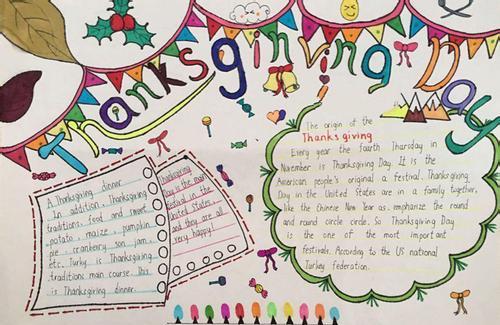 Thanksginving Day
A Thanksgiving dinner
In addition, Thanksgiving
traditions food and smart
potato, maize, pumpkin
pie, cranberry son jam,
etc. Turky is Thanksgiving
traditions main course. This
is Thanksgiving dinner.
Thanksgiving
Day is the main
festival in the
United States,
and they are all
very happy!
The origin of the
Thanks giving
Every year the fourth Thursday in
November is Thanksgiving Day. It is the
American people's original a festival. Thanksgiving
Day in the United States are in a family together,
like the Chinese New Year as. emphasize the round
and round circle circle. So Thanksgiving Day
is the one of the most important
festivals. According to the US national
Turkey federation.